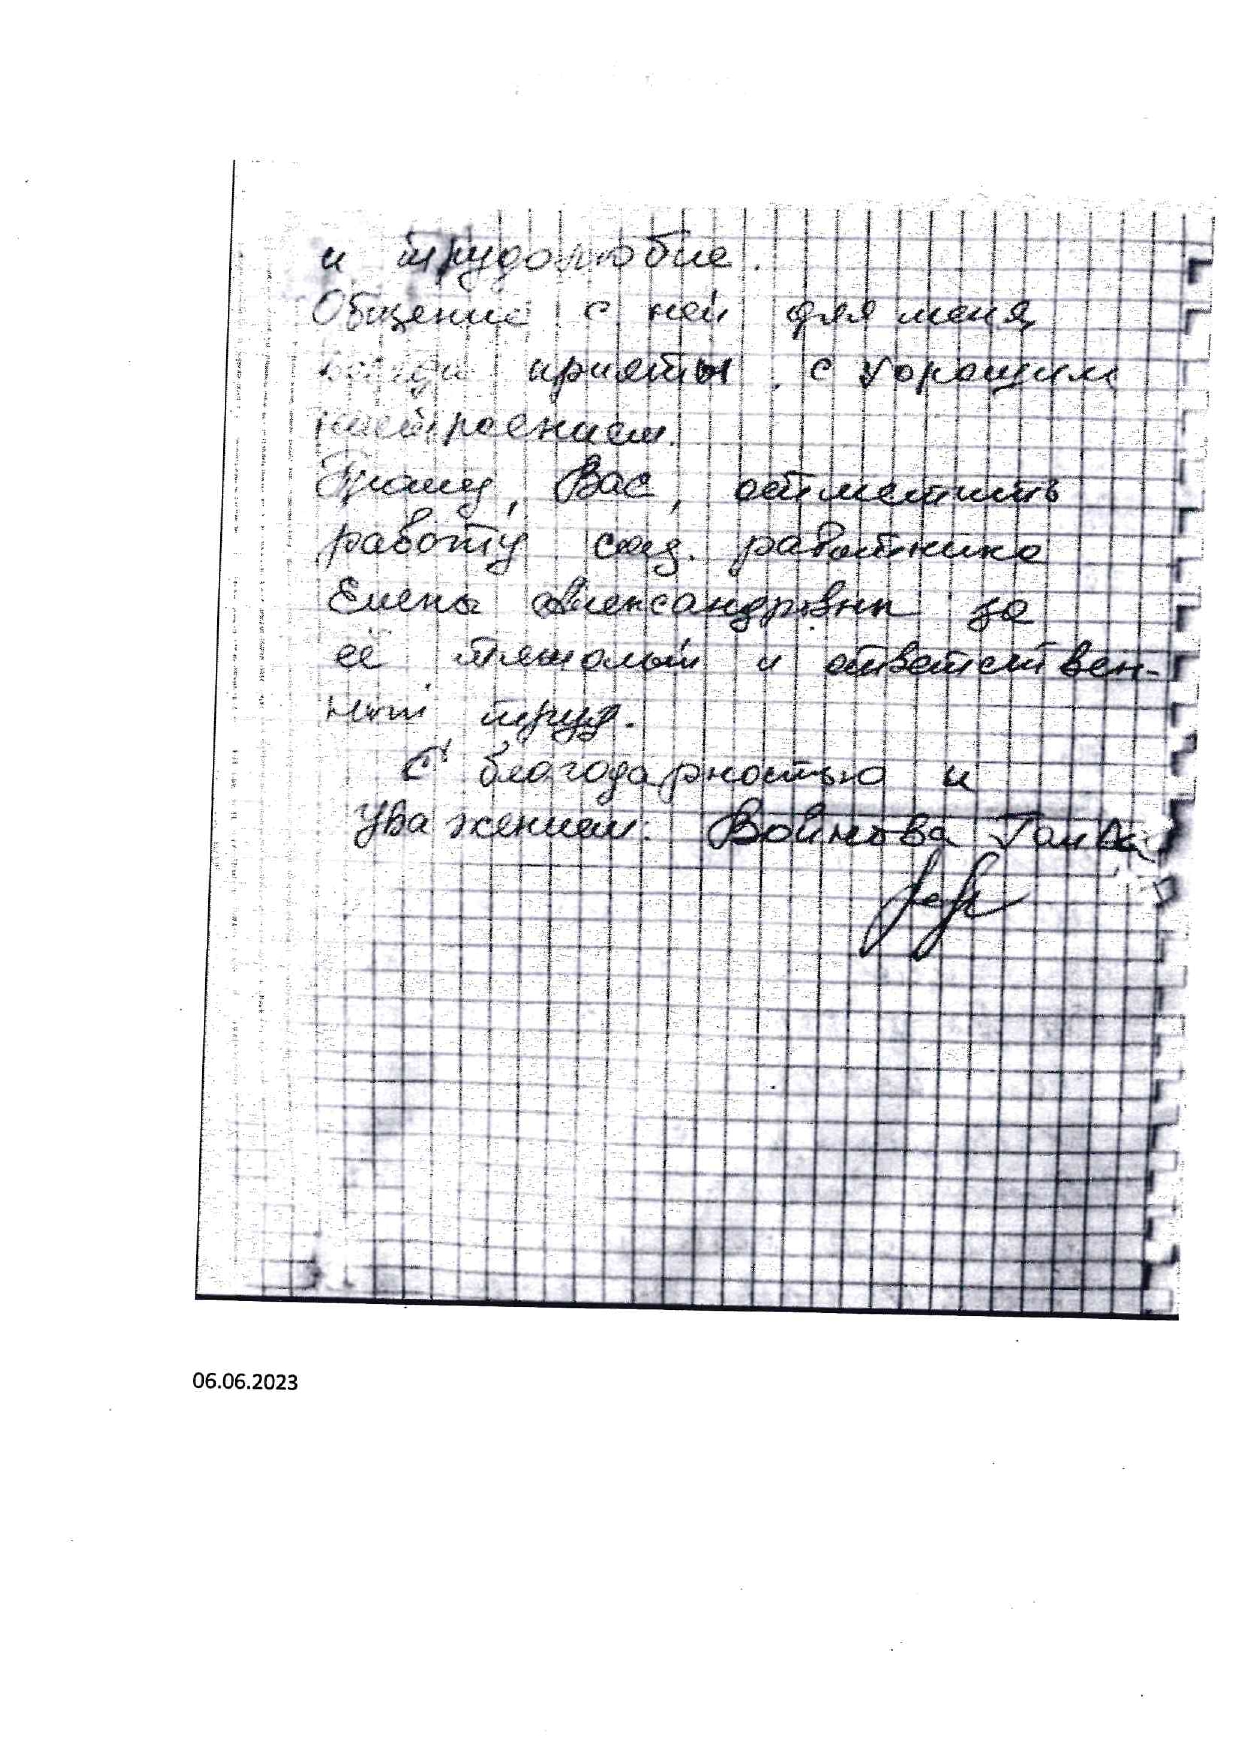 и трудолюбие.
Общение с ней для меня,
всегда приятны, с хорошим
настроением.
Прошу, Вас, отметить
работу соц. работника
Елены Александровны за
её тяжолый и ответствен-
ный труд.
С благодарностью и
уважением: Воинова
06.06.2023